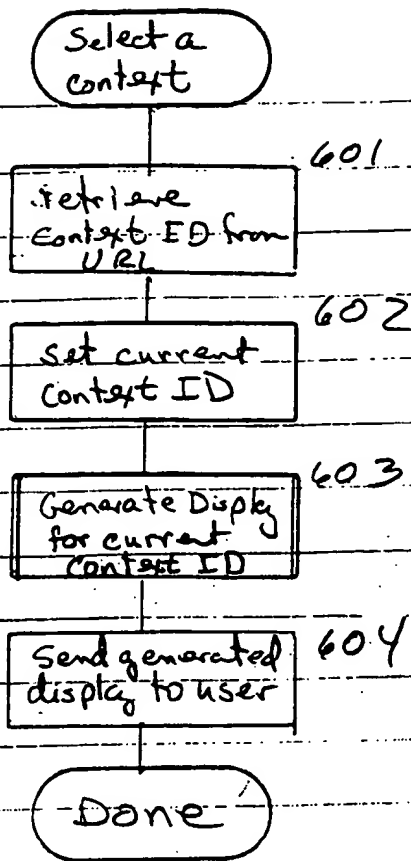 Select a
context
601
retrieve
context ID from
URL
602
Set current
Context ID
603
Generate Display
for current
context ID
604
Send generated
display to user
Done